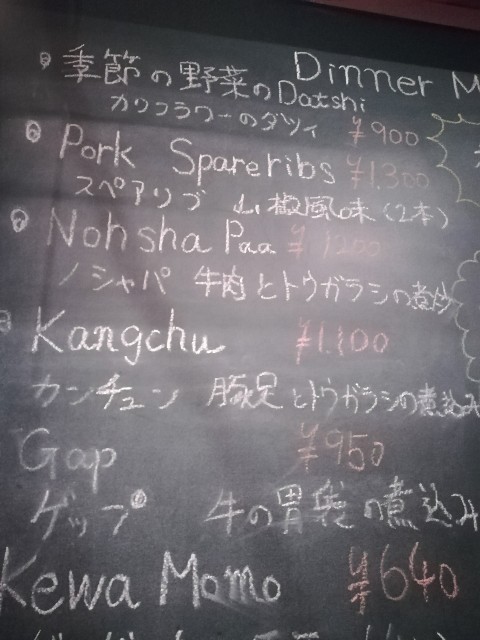 Dinner M
季節の野菜のDatshi
カリフラワーのダツィ ¥900
Pork Spareribs ¥1,300
スペアリブ 山椒風味(2本)
Nohsha Paa ¥1200
ノシャパ 牛肉とトウガラシの煮炒
Kangchu ¥1,100
カンチュン 豚足とトウガラシの煮込み
Gap ¥950
ゲップ 牛の胃袋の煮込み
Kewa Momo ¥640